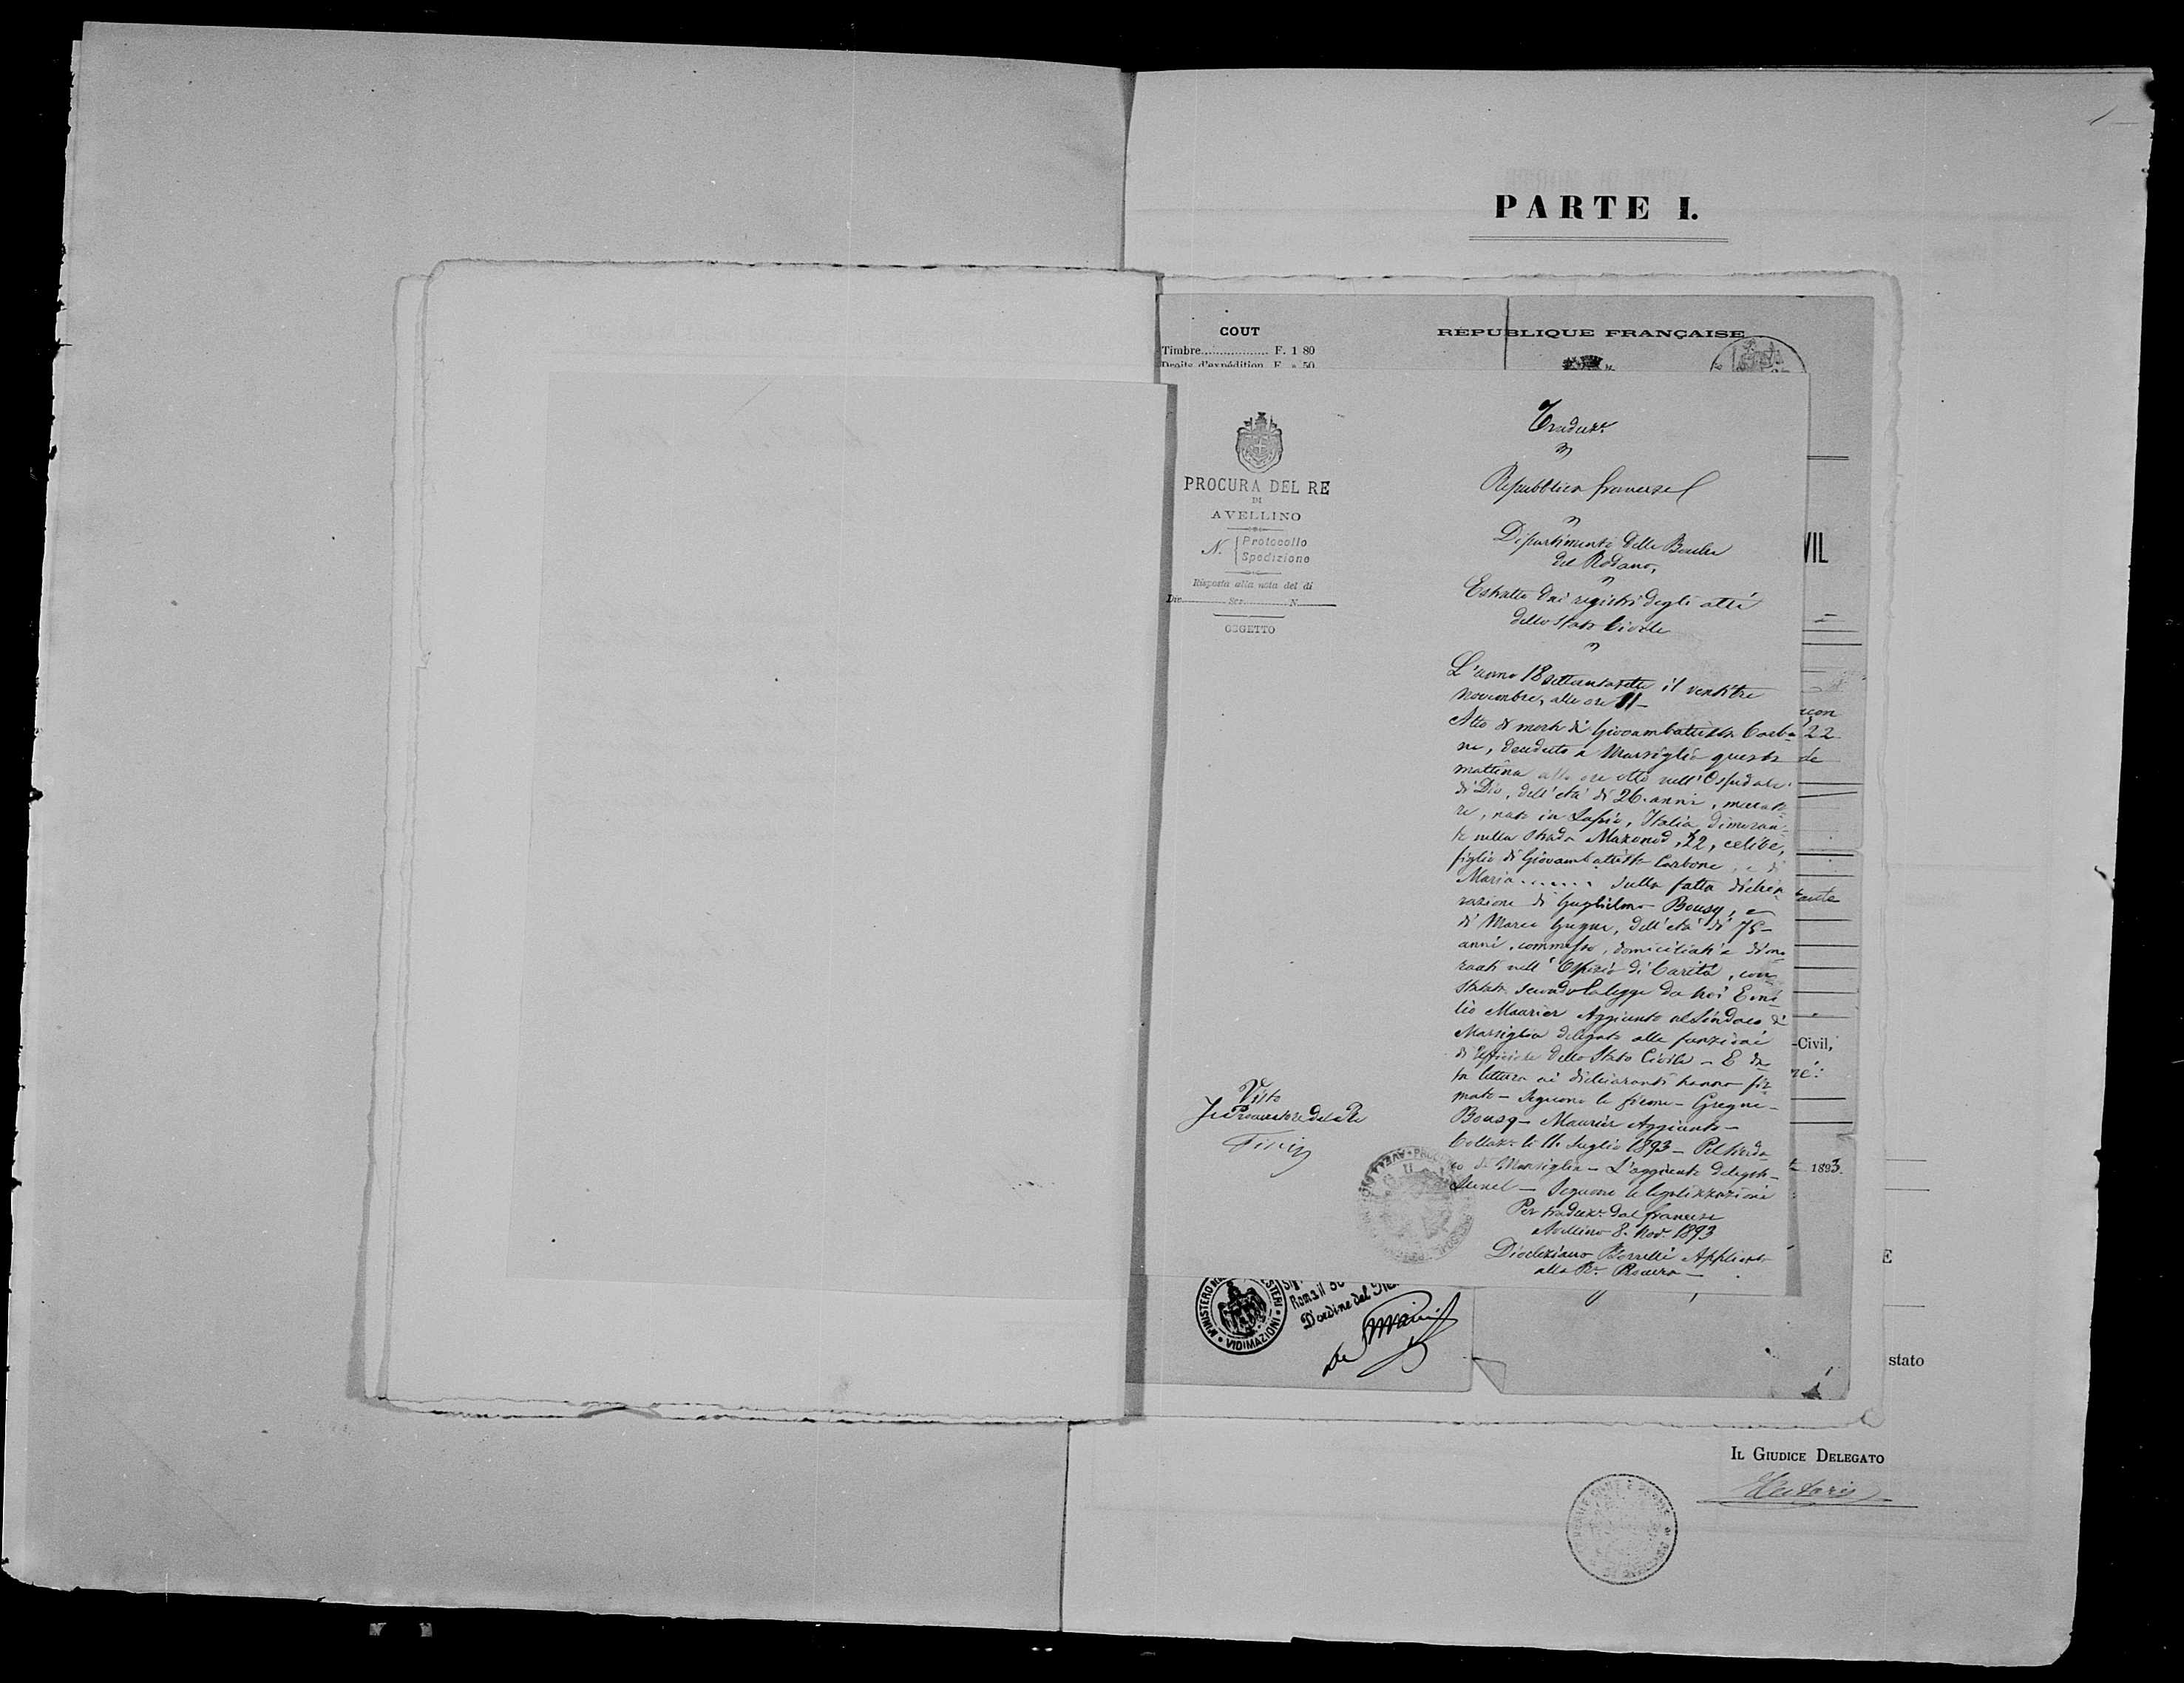 PARTE I.
COUT
Timbre.................. F. 1 80
Droits d'expédition F. » 50
RÉPUBLIQUE FRANÇAISE
PROCURA DEL RE
DI
AVELLINO
N. Protocollo
Spedizione
Risposta alla nota del di
Div. Sez. N.
OGGETTO
Traduz.e
Repubblica francese
Dipartimento delle Bocche
del Rodano,
Estratto dai registri degli atti
dello Stato Civile
L'anno 18settantasette il ventitre
Novembre, alle ore 11 —
Atto di morte di Giovambattista Carbo-
ne, deceduto a Marsiglia questa
mattina alle ore otto nell'Ospedale
di Dio, dell'età di 26 anni, murato-
re, nato in Lapio, Italia, dimoran-
te nella strada Mazenod, 22, celibe,
figlio di Giovambattista Carbone, e di
Maria ...... Sulla fatta dichia-
razione di Guglielmo Bousq, e
di Marco Gregne, dell'età di 75
anni, commesso, domiciliati e dimo-
ranti nell'Ospizio di Carità, con-
statata secondo la legge da noi Emi-
lio Maurier Aggiunto al Sindaco di
Marsiglia delegato alle funzioni
di Ufficiale dello Stato Civile — E da-
ta lettura ai dichiaranti hanno fir-
mato — Seguono le firme — Gregne —
Bousq — Maurier Aggiunto —
Collaz.e li 11 luglio 1893 — Pel Sinda-
co di Marsiglia — L'aggiunto delegato —
Seguono le legalizzazioni
Per traduz.e dal francese
Avellino 8. Nov. 1893
Diocleziano Borrelli Applicato
alla R.a Procura —
Visto
Il Procuratore del Re
VIL
22
de
-Civil,
1893.
stato
MINISTERO
VIDIMAZIONI
Roma il 30
D'ordine del
IL GIUDICE DELEGATO